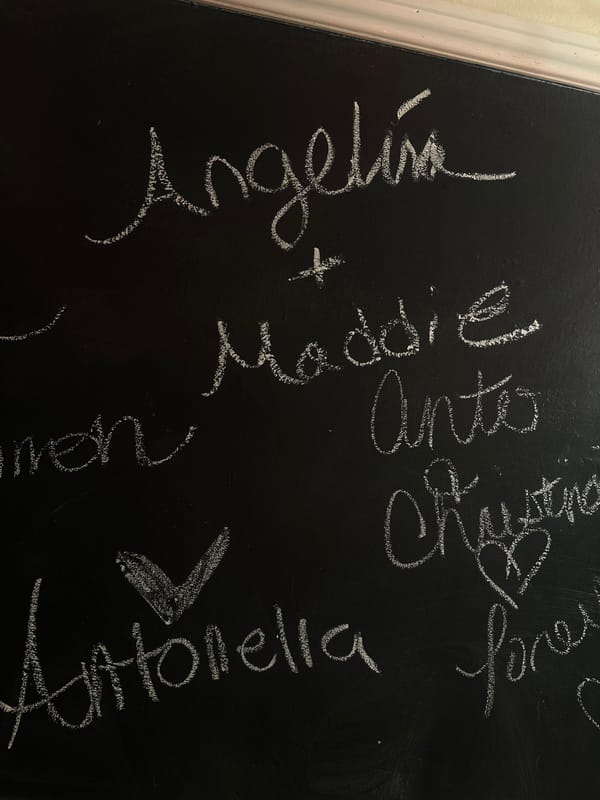 Angelina
+
Maddie
Anto
&
Christina
Antonella